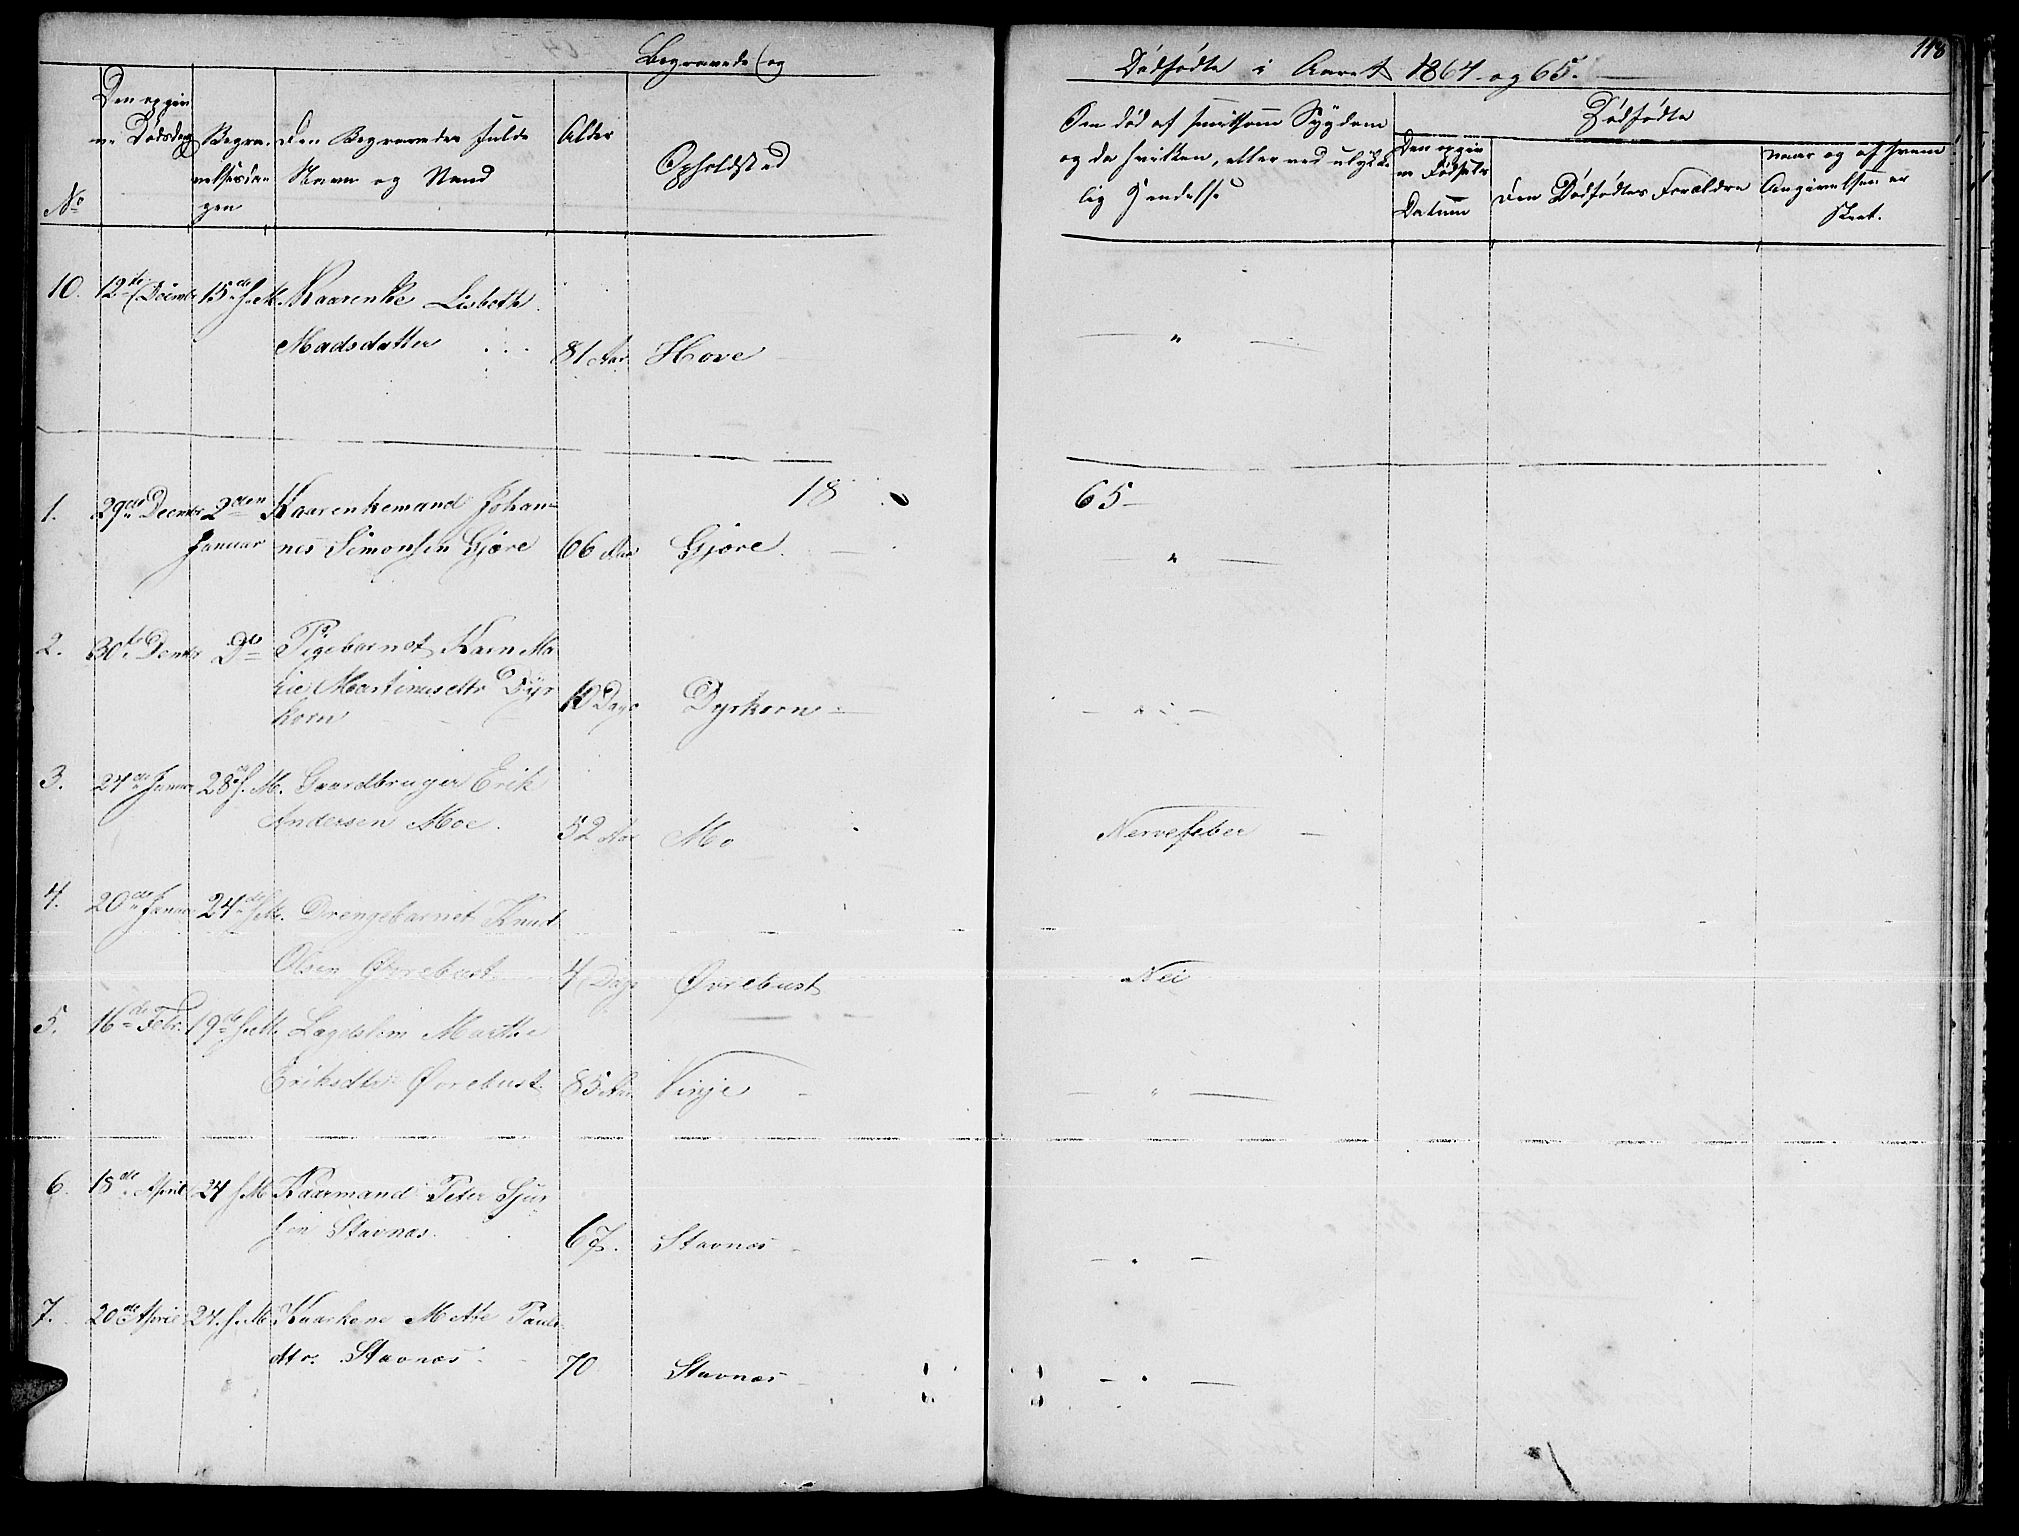 118
Begravede og
Dødfødte i Aaret 1864 og 65.
No
Den opgiv
ne Dødsdag
Begra-
velsesda-
gen
Den Begravedes fulde
Navn og Stand
Alder
Opholdsted
Om død af smitsom Sygdom
og da hvilken, eller ved ulykke-
lig Hendelse
Dødfødte
Den opgiv
ne Fødsels
Datum
Den Dødfødtes Forældre
Naar og af hvem
Angivelsen er
skeet.
10. 12te Decembr 15de s. M. Kaarenke Lisbeth
Madsdatter 81 Aar Hove "
18 65
1. 29de Decmbr 2den Kaarenkemand Johan-
Januar nes Simonsen Gjøre 66 Aar Gjøre. "
2. 30te Decmbr Do Pigebarnet Karn Ma
rie Martinusdtr Dyr
korn 10 Dage Dyrkorn "
3. 24de Januar 28de s. M. Gaardbruger Erik
Andersen Moe. 52 Aar Mo Nervefeber
4. 20de Januar 24de s. M. Drengebarnet Knud
Olsen Øvrebust 4 Dage Øvrebust Nei
5. 16de Febr. 19de s. M. Lægdslem Marthe
Eriksdtr Øvrebust 85 Aar Vinje "
6. 18de April 24 s. M. Kaarmand Peter Sjur
sen Stavnæs. 67. Stavnæs "
7. 20de April 24. s. M. Kaarkone Mette Pauls
dtr. Stavnæs 70 Stavnæs "